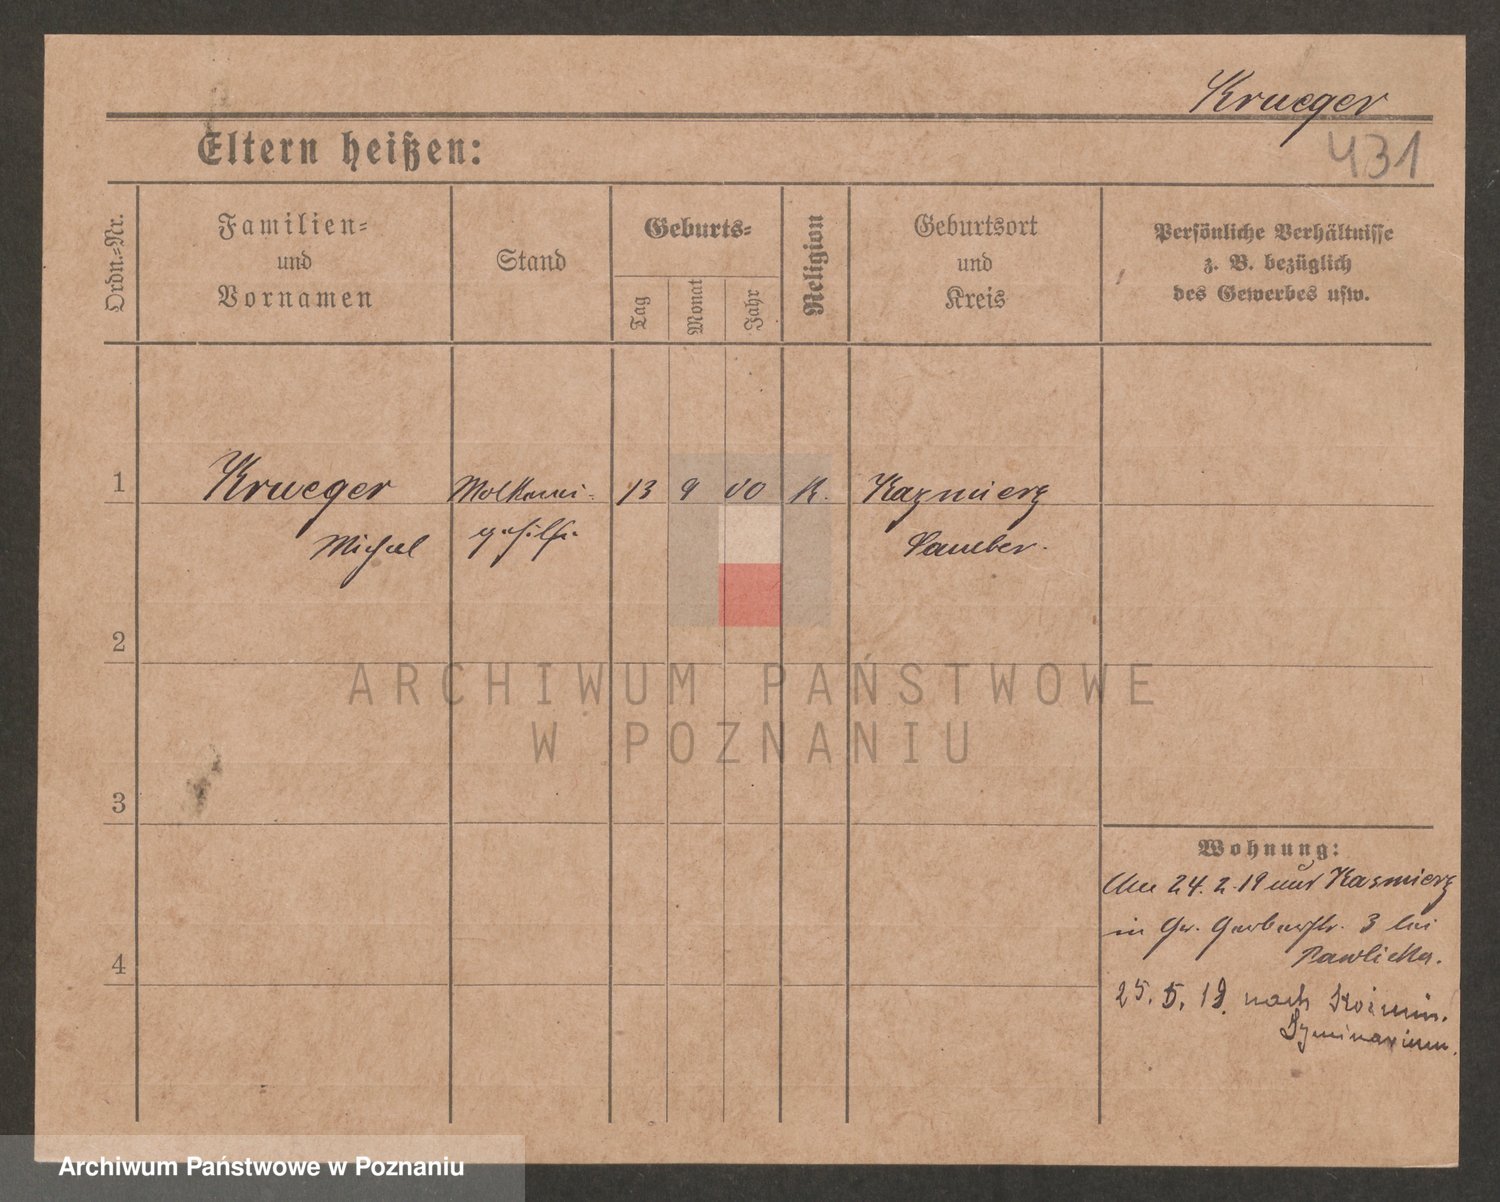 Krueger
431
Eltern heißen:
Ordn.-Nr.
Familien-
und
Vornamen
Stand
Geburts-
Tag
Monat
Jahr
Religion
Geburtsort
und
Kreis
Persönliche Verhältnisse
z. B. bezüglich
des Gewerbes usw.
1 Krueger Molkerei- 13 9 00 K. Kazmierz
Michael gehilfe Samber.
2
ARCHIWUM PAŃSTWOWE
W POZNANIU
3
Wohnung:
24.2.19 Kazmierz
in Gr. Gerberstr. 3 bei
Pawlicka.
4
25.5.19. nach
Archiwum Państwowe w Poznaniu